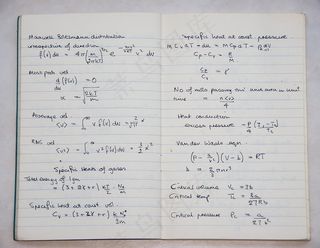 Maxwell Boltzmann distribution
irrespective of direction
f(v) dv = 4π (m/2πkT)^3/2 e^-mv²/2kT v² dv
Most prob vel
d(f(v))/dv = 0
α = √2kT/m
Average vel
<v> = ∫₀^∞ v f(v) dv = 2/√π α
RMS vel
<v²> = ∫₀^∞ v² f(v) dv = 3/2 α²
Specific heats of gases
Total energy of 1 gm
Specific heat at const vol.
Specific heat at const pressure
Cp - Cv = R/M
Cp/Cv = γ
No of mols passing thro' unit area in unit
time = n<v>/4
Heat conduction
Van der Waals eqn
(V - b) = RT
Critical volume Vc = 3b
Critical temp Tc = 8a/27Rb
Critical pressure Pc = a/27b²